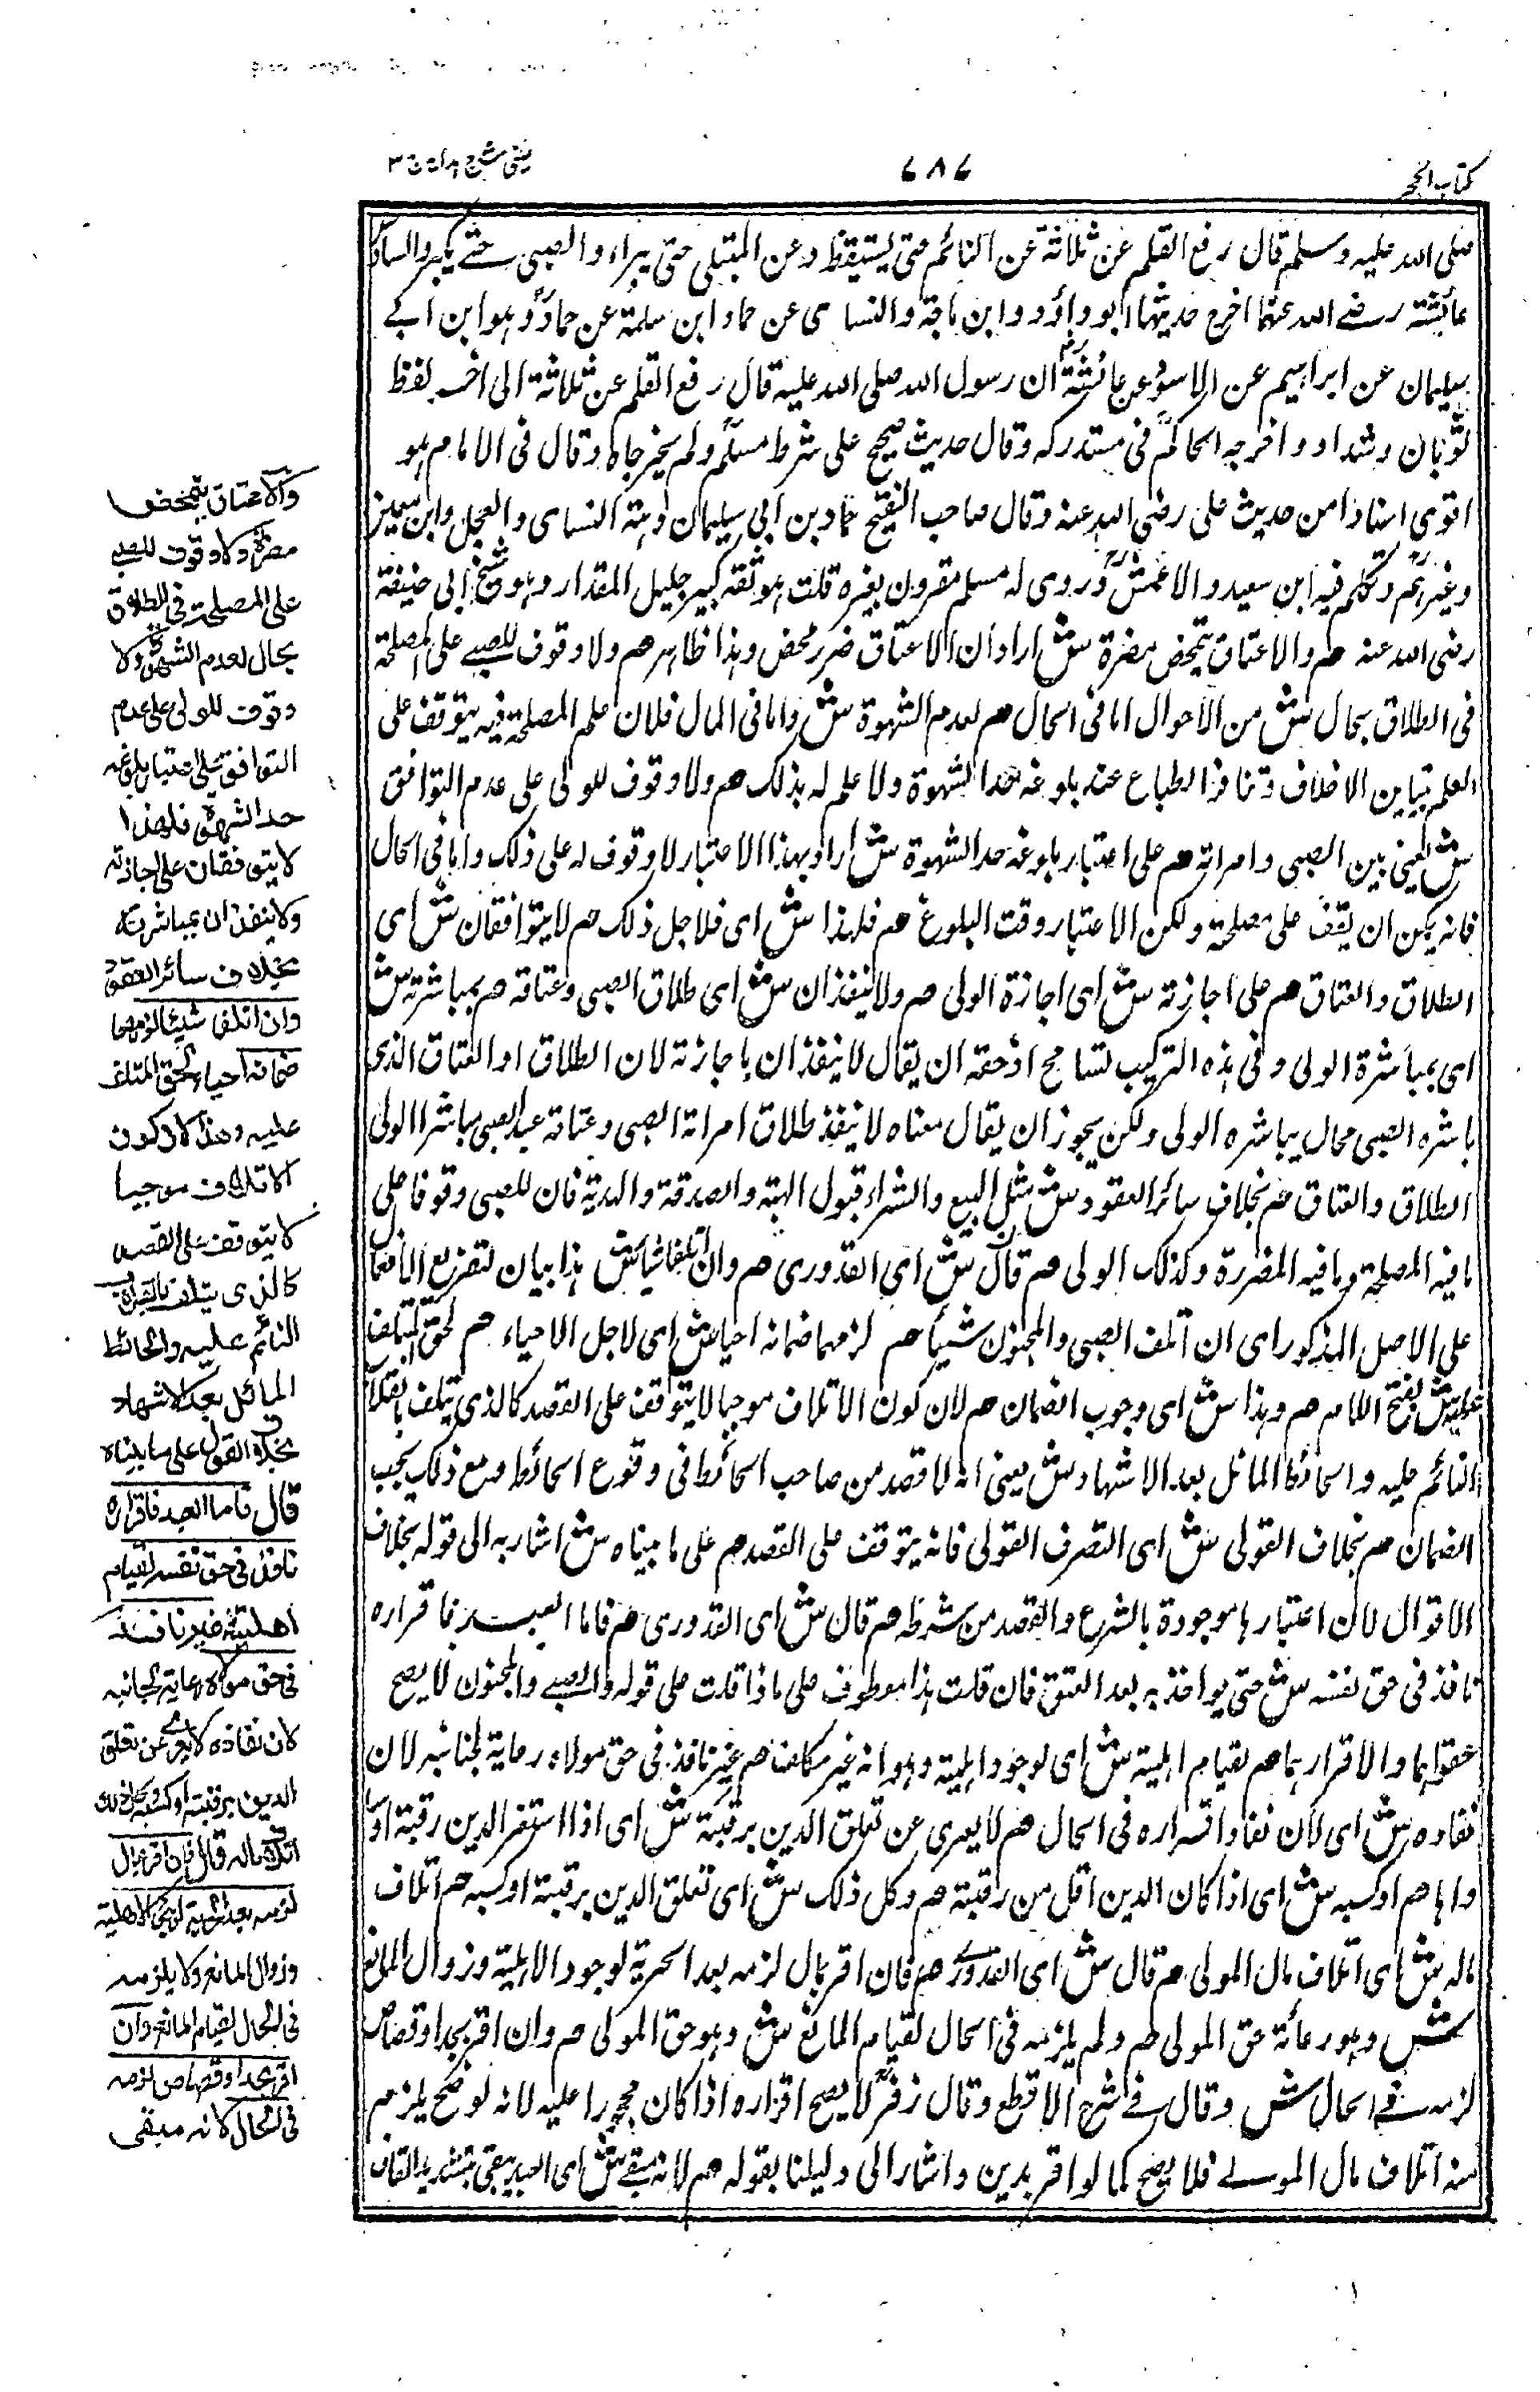 كتاب الحجر
٦٨٦
عينى شرح هداية ج ٣
صلى الله عليه وسلم قال رفع القلم عن ثلاثة عن النائم حتى يستيقظ وعن المبتلى حتى يبراء والصبى حتى يكبر والساد
عائشة رضى الله عنها اخرج حديثها ابو داؤد وابن ماجة والنساى عن حماد ابن سلمة عن حماد وهو ابن ابى
سليمان عن ابراهيم عن الاسود عن عائشة ان رسول الله صلى الله عليه قال رفع القلم عن ثلاثة الى اخر لفظ
ثوبان وشداد واخرجه الحاكم فى مستدركه وقال حديث صحيح على شرط مسلم ولم يخرجاه وقال فى الامام هو
اقوى اسنادا من حديث على رضى الله عنه وقال صاحب التنقيح حماد بن ابى سليمان وثقه النساى والعجلى وابن معين
وغيرهم وتكلم فيه ابن سعيد والاعمش وروى له مسلم مقرون بغيره قلت هو ثقة كبير جليل المقدار وهو شيخ ابى حنيفة
رضى الله عنه هم والاعتاق يتمحض مضرة ش اراد ان الاعتاق ضرر محض وهذا ظاهر هم ولا وقوف للصبى على المصلحة
فى الطلاق بحال ش من الاحوال اما فى الحال هم لعدم الشهوة ش واما فى المال فلان علم المصلحة فيه يتوقف على
العلم بتباين الاخلاف وتنافر الطباع عند بلوغه حد الشهوة ولا علم له بذلك هم ولا وقوف للولى على عدم التوافق
ش يعنى بين الصبى وامراته هم على اعتبار بلوغه حد الشهوة ش اراد بهذا الاعتبار لا وقوف له على ذلك واما فى الحال
فانه يمكن ان يقف على مصلحة ولكن الاعتبار وقت البلوغ هم فلهذا ش اى فلاجل ذلك هم لا يتوافقان ش اى
الطلاق والعتاق هم على اجازته ش اى اجازة الولى هم ولا ينفذان ش اى طلاق الصبى وعتاقه هم بمباشرته ش
اى بمباشرة الولى وفى هذه التركيب تسامح اذ حقه ان يقال لا ينفذان باجازته لان الطلاق او العتاق الذى
باشره الصبى محال يباشره الولى ولكن يجوز ان يقال معناه لا ينفذ طلاق امراة الصبى وعتاقة عبد الصبى مباشر الولى
الطلاق والعتاق هم بخلاف سائر العقود ش مثل البيع والشراء وقبول الهبة والصدقة والهدية فان للصبى وقوفا على
ما فيه المصلحة وما فيه المضررة وكذلك الولى هم قال ش اى القدورى هم وان اتلفا شيا ش هذا بيان لتفريع الافعال
على الاصل المذكور اى ان اتلف الصبى والمجنون شيئا هم لزمهما ضمانه احياء ش اى لاجل الاحياء هم لحق المتلف
عليه ش بفتح اللام هم وهذا ش اى وجوب الضمان هم لان كون الاتلاف موجبا لا يتوقف على القصد كالذى يتلف بانقلاب
النائم عليه والحائط المائل بعد الاشهاد ش يعنى انه لا قصد من صاحب الحائط فى وقوع الحائط ومع ذلك يجب
الضمان هم بخلاف القولى ش اى التصرف القولى فانه يتوقف على القصد هم على ما بيناه ش اشار به الى قوله بخلاف
الاقوال لان اعتبارها موجودة بالشرع والقصد من شرطه هم قال ش اى القدورى هم فاما العبد فاقراره
نافذ فى حق نفسه ش حتى يواخذ به بعد العتق فان قلت هذا معطوف على ماذا قلت على قوله والصبى والمجنون لا يصح
عقودهما والا اقرارهما هم لقيام اهليته ش اى لوجود اهليته وهو انه غير مكلف هم غير نافذ فى حق مولاه رعاية لجانبه لان
نفاده ش اى لان نفاد اقراره فى الحال هم لا يعرى عن تعلق الدين برقبته ش اى اذا استغر الدين رقبة
واما هم او كسبه ش اى اذا كان الدين اقل من رقبته هم وكل ذلك ش اى تعلق الدين برقبته او كسبه هم اتلاف
ماله ش اى اتلاف مال المولى هم قال ش اى القدورى هم فان اقر بمال لزمه بعد الحرية لوجود الاهلية وزوال المانع
ش وهو رعائة حق المولى هم ولم يلزمه فى الحال لقيام المانع ش وهو حق المولى هم وان اقر بحد او قصاص
لزمه فى الحال ش وقال فى شرح الاقطع وقال زفر لا يصح اقراره اذا كان محجورا عليه لانه لو صح يلزم
منه اتلاف مال المولى فلا يصح كما لو اقر بدين واشار الى دليلنا بقوله هم لانه مبقى ش اى العبد يبقى بتشديد القاف
والاعتاق يتمحض
مضرة ولا وقوف للصبى
على المصلحة فى الطلاق
بحال لعدم الشهوة ولا
وقوف للولى على عدم
التوافق على اعتبار بلوغه
حد الشهوة فلهذا
لا يتوقفان على اجازته
ولا ينفذان بمباشرته
بخلاف سائر العقود
وان اتلفا شيئا لزمهما
ضمانه احياء لحق المتلف
عليه وهذا لان كون
الاتلاف موجبا
لا يتوقف على القصد
كالذى يتلف بانقلاب
النائم عليه والحائط
المائل بعد الاشهاد
بخلاف القولى على ما بيناه
قال فاما العبد فاقراره
نافذ فى حق نفسه لقيام
اهليته غير نافذ
فى حق مولاه رعاية لجانبه
لان نفاذه لا يعرى عن تعلق
الدين برقبته او كسبه وكل ذلك
اتلاف ماله قال فان اقر بمال
لزمه بعد الحرية لوجود الاهلية
وزوال المانع ولا يلزمه
فى الحال لقيام المانع وان
اقر بحد او قصاص لزمه
فى الحال لانه مبقى